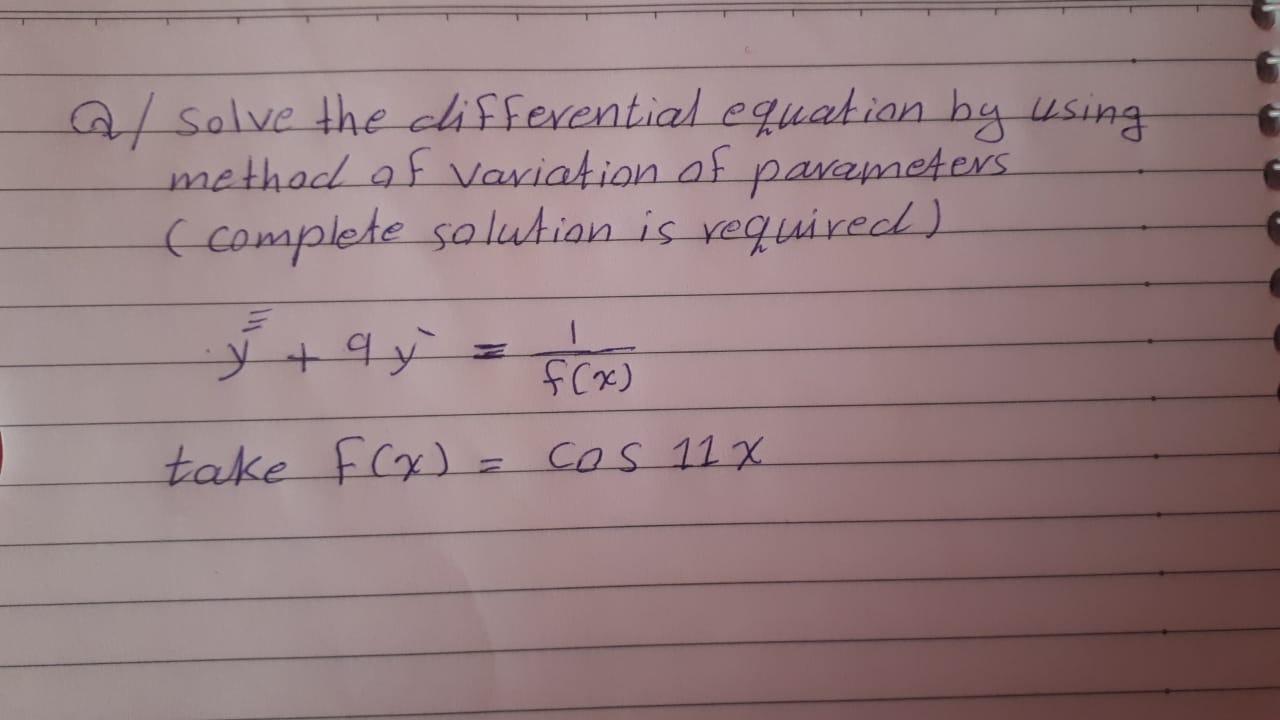 Q/ solve the differential equation by using
method of variation of parameters
(complete solution is required)
y‴ + 9y′ = 1/f(x)
take f(x) = cos 11x